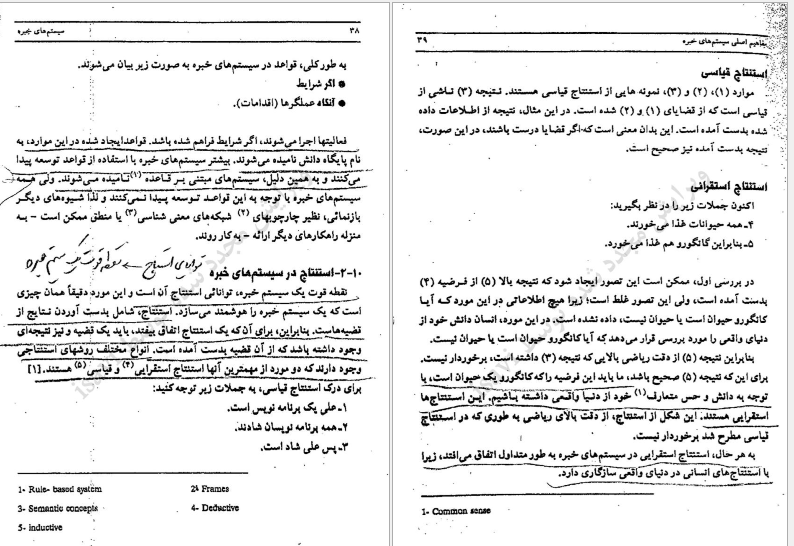 سیستم‌های خبره
۳۸
به طور کلی، قواعد در سیستم‌های خبره به صورت زیر بیان می‌شوند.
● اگر شرایط
● آنگاه عملگرها (اقدامات).
فعالیتها اجرا می‌شوند، اگر شرایط فراهم شده باشد. قواعد ایجاد شده در این موارد، به
نام پایگاه دانش نامیده می‌شوند. بیشتر سیستم‌های خبره با استفاده از قواعد توسعه پیدا
می‌کنند و به همین دلیل، سیستم‌های مبتنی بر قاعده (۱) نامیده می‌شوند. ولی همه
سیستم‌های خبره با توجه به این قواعد توسعه پیدا نمی‌کنند و لذا شیوه‌های دیگر
بازنمائی، نظیر چارچوبهای (۲) شبکه‌های معنی شناسی (۳) یا منطق ممکن است - به
منزله راهکارهای دیگر ارائه - به کار روند.
توانایی استنتاج
۱۰-۲-استنتاج در سیستم‌های خبره
نقطه قوت یک سیستم خبره، توانائی استنتاج آن است و این مورد دقیقاً همان چیزی
است که یک سیستم خبره را هوشمند می‌سازد. استنتاج، شامل بدست آوردن نتایج از
قضیه‌هاست. بنابراین، برای آن که یک استنتاج اتفاق بیفتد، باید یک قضیه و نیز نتیجه‌ای
وجود داشته باشد که از آن قضیه بدست آمده است. انواع مختلف روشهای استنتاجی
وجود دارند که دو مورد از مهمترین آنها استنتاج استقرایی (۴) و قیاسی (۵) هستند. [۱]
برای درک استنتاج قیاسی، به جملات زیر توجه کنید:
۱-علی یک برنامه نویس است.
۲-همه برنامه نویسان شادند.
۳-پس علی شاد است.
1- Rule- based system
2- Frames
3- Semantic concepts
4- Deductive
5- inductive
مفاهیم اصلی سیستم‌های خبره
۳۹
استنتاج قیاسی
موارد (۱)، (۲) و (۳)، نمونه هایی از استنتاج قیاسی هستند. نتیجه (۳) ناشی از
قیاسی است که از قضایای (۱) و (۲) شده است. در این مثال، نتیجه از اطلاعات داده
شده بدست آمده است. این بدان معنی است که اگر قضایا درست باشند، در این صورت،
نتیجه بدست آمده نیز صحیح است.
استنتاج استقرائی
اکنون جملات زیر را در نظر بگیرید:
۴-همه حیوانات غذا می‌خورند.
۵-بنابراین کانگورو هم غذا می‌خورد.
در بررسی اول، ممکن است این تصور ایجاد شود که نتیجه بالا (۵) از فرضیه (۴)
بدست آمده است، ولی این تصور غلط است؛ زیرا هیچ اطلاعاتی در این مورد که آیا
کانگورو حیوان است یا حیوان نیست، داده نشده است. در این مورد، انسان دانش خود از
دنیای واقعی را مورد بررسی قرار می‌دهد که آیا کانگورو حیوان است یا حیوان نیست.
بنابراین نتیجه (۵) از دقت ریاضی بالایی که نتیجه (۳) داشته است، برخوردار نیست.
برای این که نتیجه (۵) صحیح باشد، ما باید این فرضیه را که کانگورو یک حیوان است، با
توجه به دانش و حس متعارف (۱) خود از دنیا واقعی داشته باشیم. این استنتاج‌ها
استقرایی هستند. این شکل از استنتاج، از دقت بالای ریاضی به طوری که در استنتاج
قیاسی مطرح شد برخوردار نیست.
به هر حال، استنتاج استقرایی در سیستم‌های خبره به طور متداول اتفاق می‌افتد، زیرا
با استنتاج‌های انسانی در دنیای واقعی سازگاری دارد.
1- Common sense